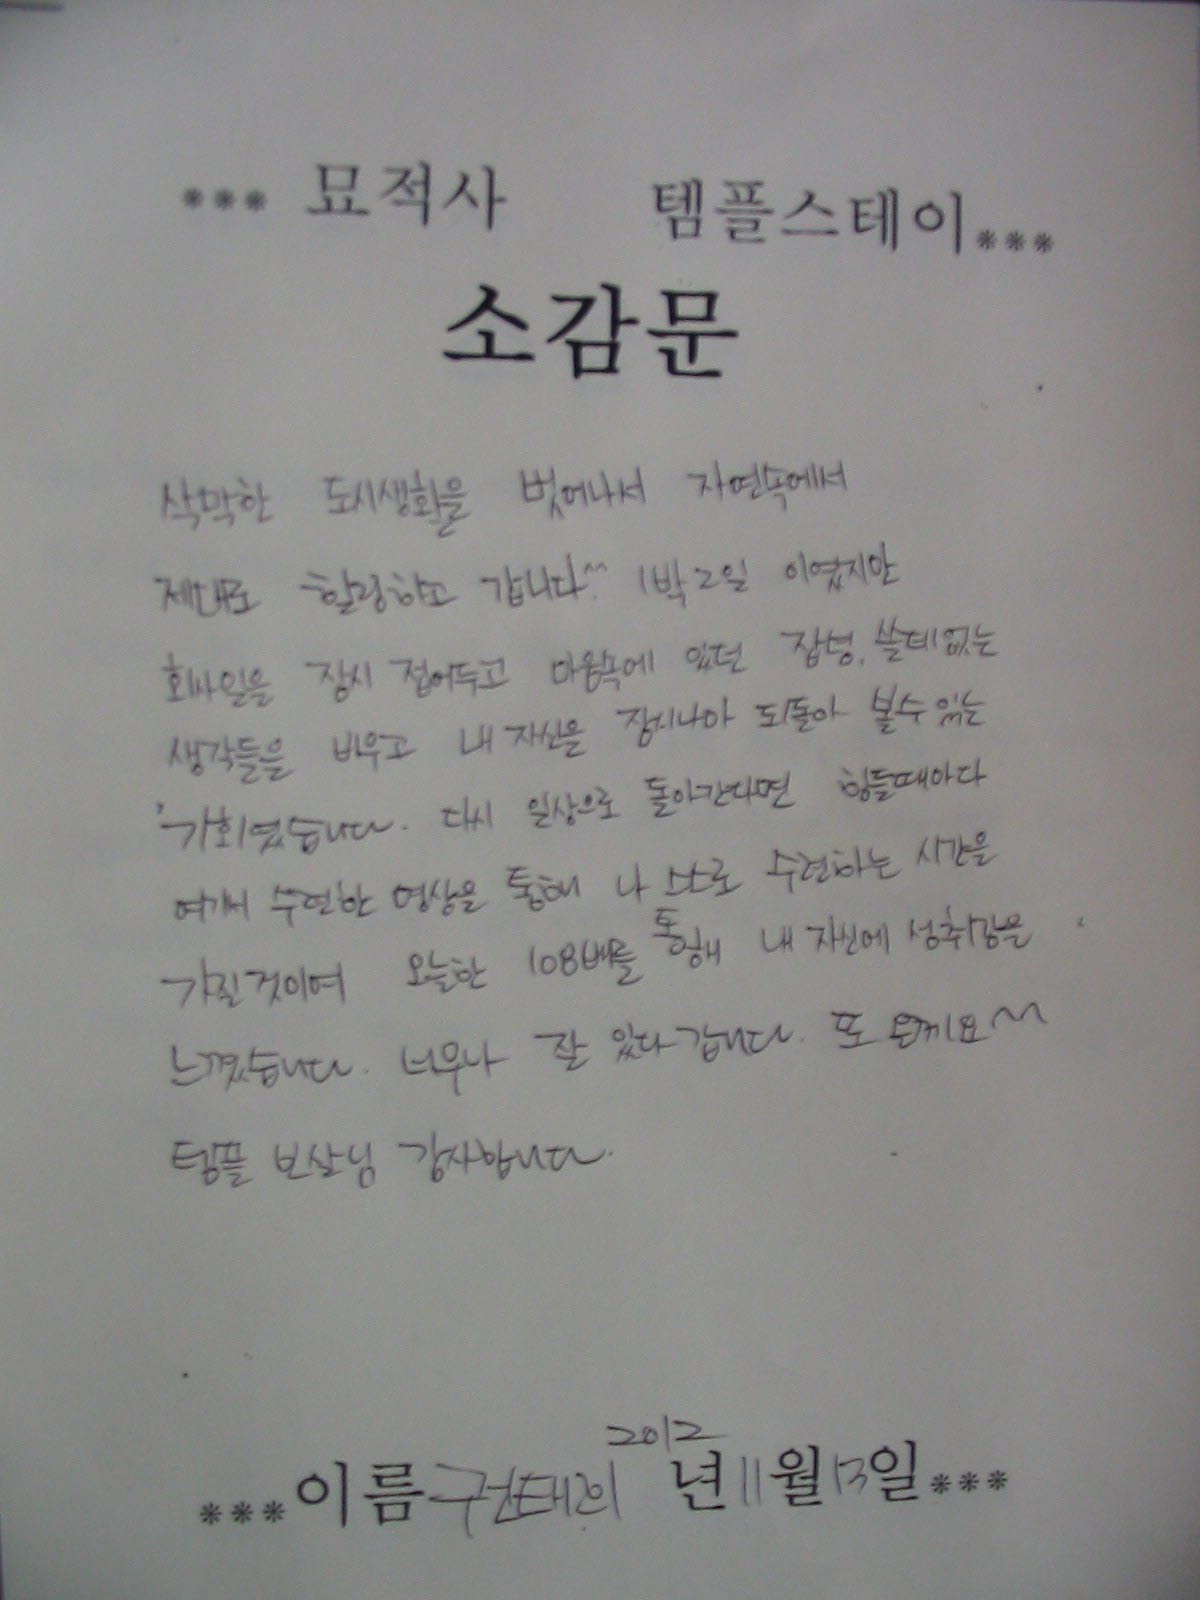 *** 묘적사 템플스테이 ***
소감문
삭막한 도시생활을 벗어나서 자연속에서
제대로 힐링하고 갑니다^^ 1박2일 이였지만
회사일을 잠시 접어두고 마음속에 있던 잡념, 쓸데없는
생각들을 비우고 내 자신을 잠시나마 되돌아 볼수 있는
기회였습니다. 다시 일상으로 돌아간다면 힘들때마다
여기서 수련한 명상을 통해 나 스스로 수련하는 시간을
가질것이며 오늘한 108배를 통해 내 자신에 성취감을
느꼈습니다. 너무나 잘 있다 갑니다. 또 올께요^^
템플 보살님 감사합니다.
*** 이름 2012 년 11 월 13 일 ***